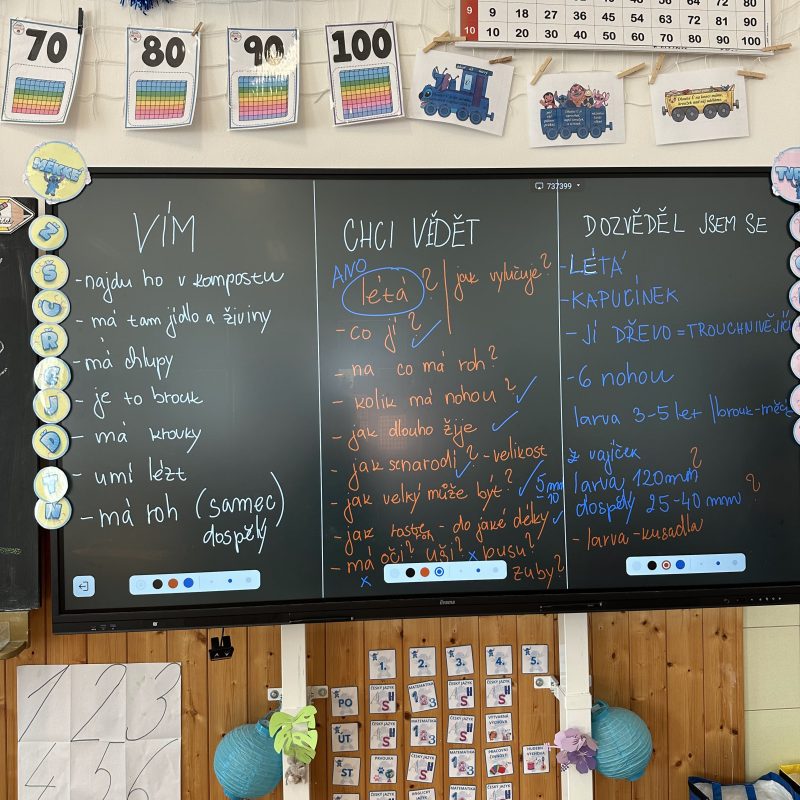 70
80
90
100
9 9 18 27 36 45 54 63 72 81
10 10 20 30 40 50 60 70 80 90 100
MĚKKÉ
Ž
Š
Č
Ř
C
J
Ď
Ť
Ň
737399
VÍM
- najdu ho v kompostu
- má tam jídlo a živiny
- má chlupy
- je to brouk
- má krovky
- umí lézt
- má roh (samec)
dospělý
CHCI VĚDĚT
ANO
létá? jak vylučuje?
- co jí?
- na co má roh?
- kolik má nohou?
- jak dlouho žije
- jak se narodí? - velikost
- jak velký může být? 5 mm
10
- jak roste roh - do jaké délky
- má oči? uši? x pusu?
x zuby?
DOZVĚDĚL JSEM SE
- LÉTÁ
- KAPUCÍNEK
- JÍ DŘEVO = TROUCHNIVĚJÍCÍ
- 6 nohou
larva 3-5 let / brouk - měs
z vajíček
larva 120mm ?
dospělý 25-40 mm ?
- larva - kusadla
iiyama
1. 2. 3. 4. 5.
PO
ÚT
ST
ČESKÝ JAZYK
MATEMATIKA
PRVOUKA
VÝTVARNÁ VÝCHOVA
PRACOVNÍ ČINNOSTI
HUDEBNÍ VÝCHOVA
ANGLICKÝ JAZYK
1 2 3
4 5 6